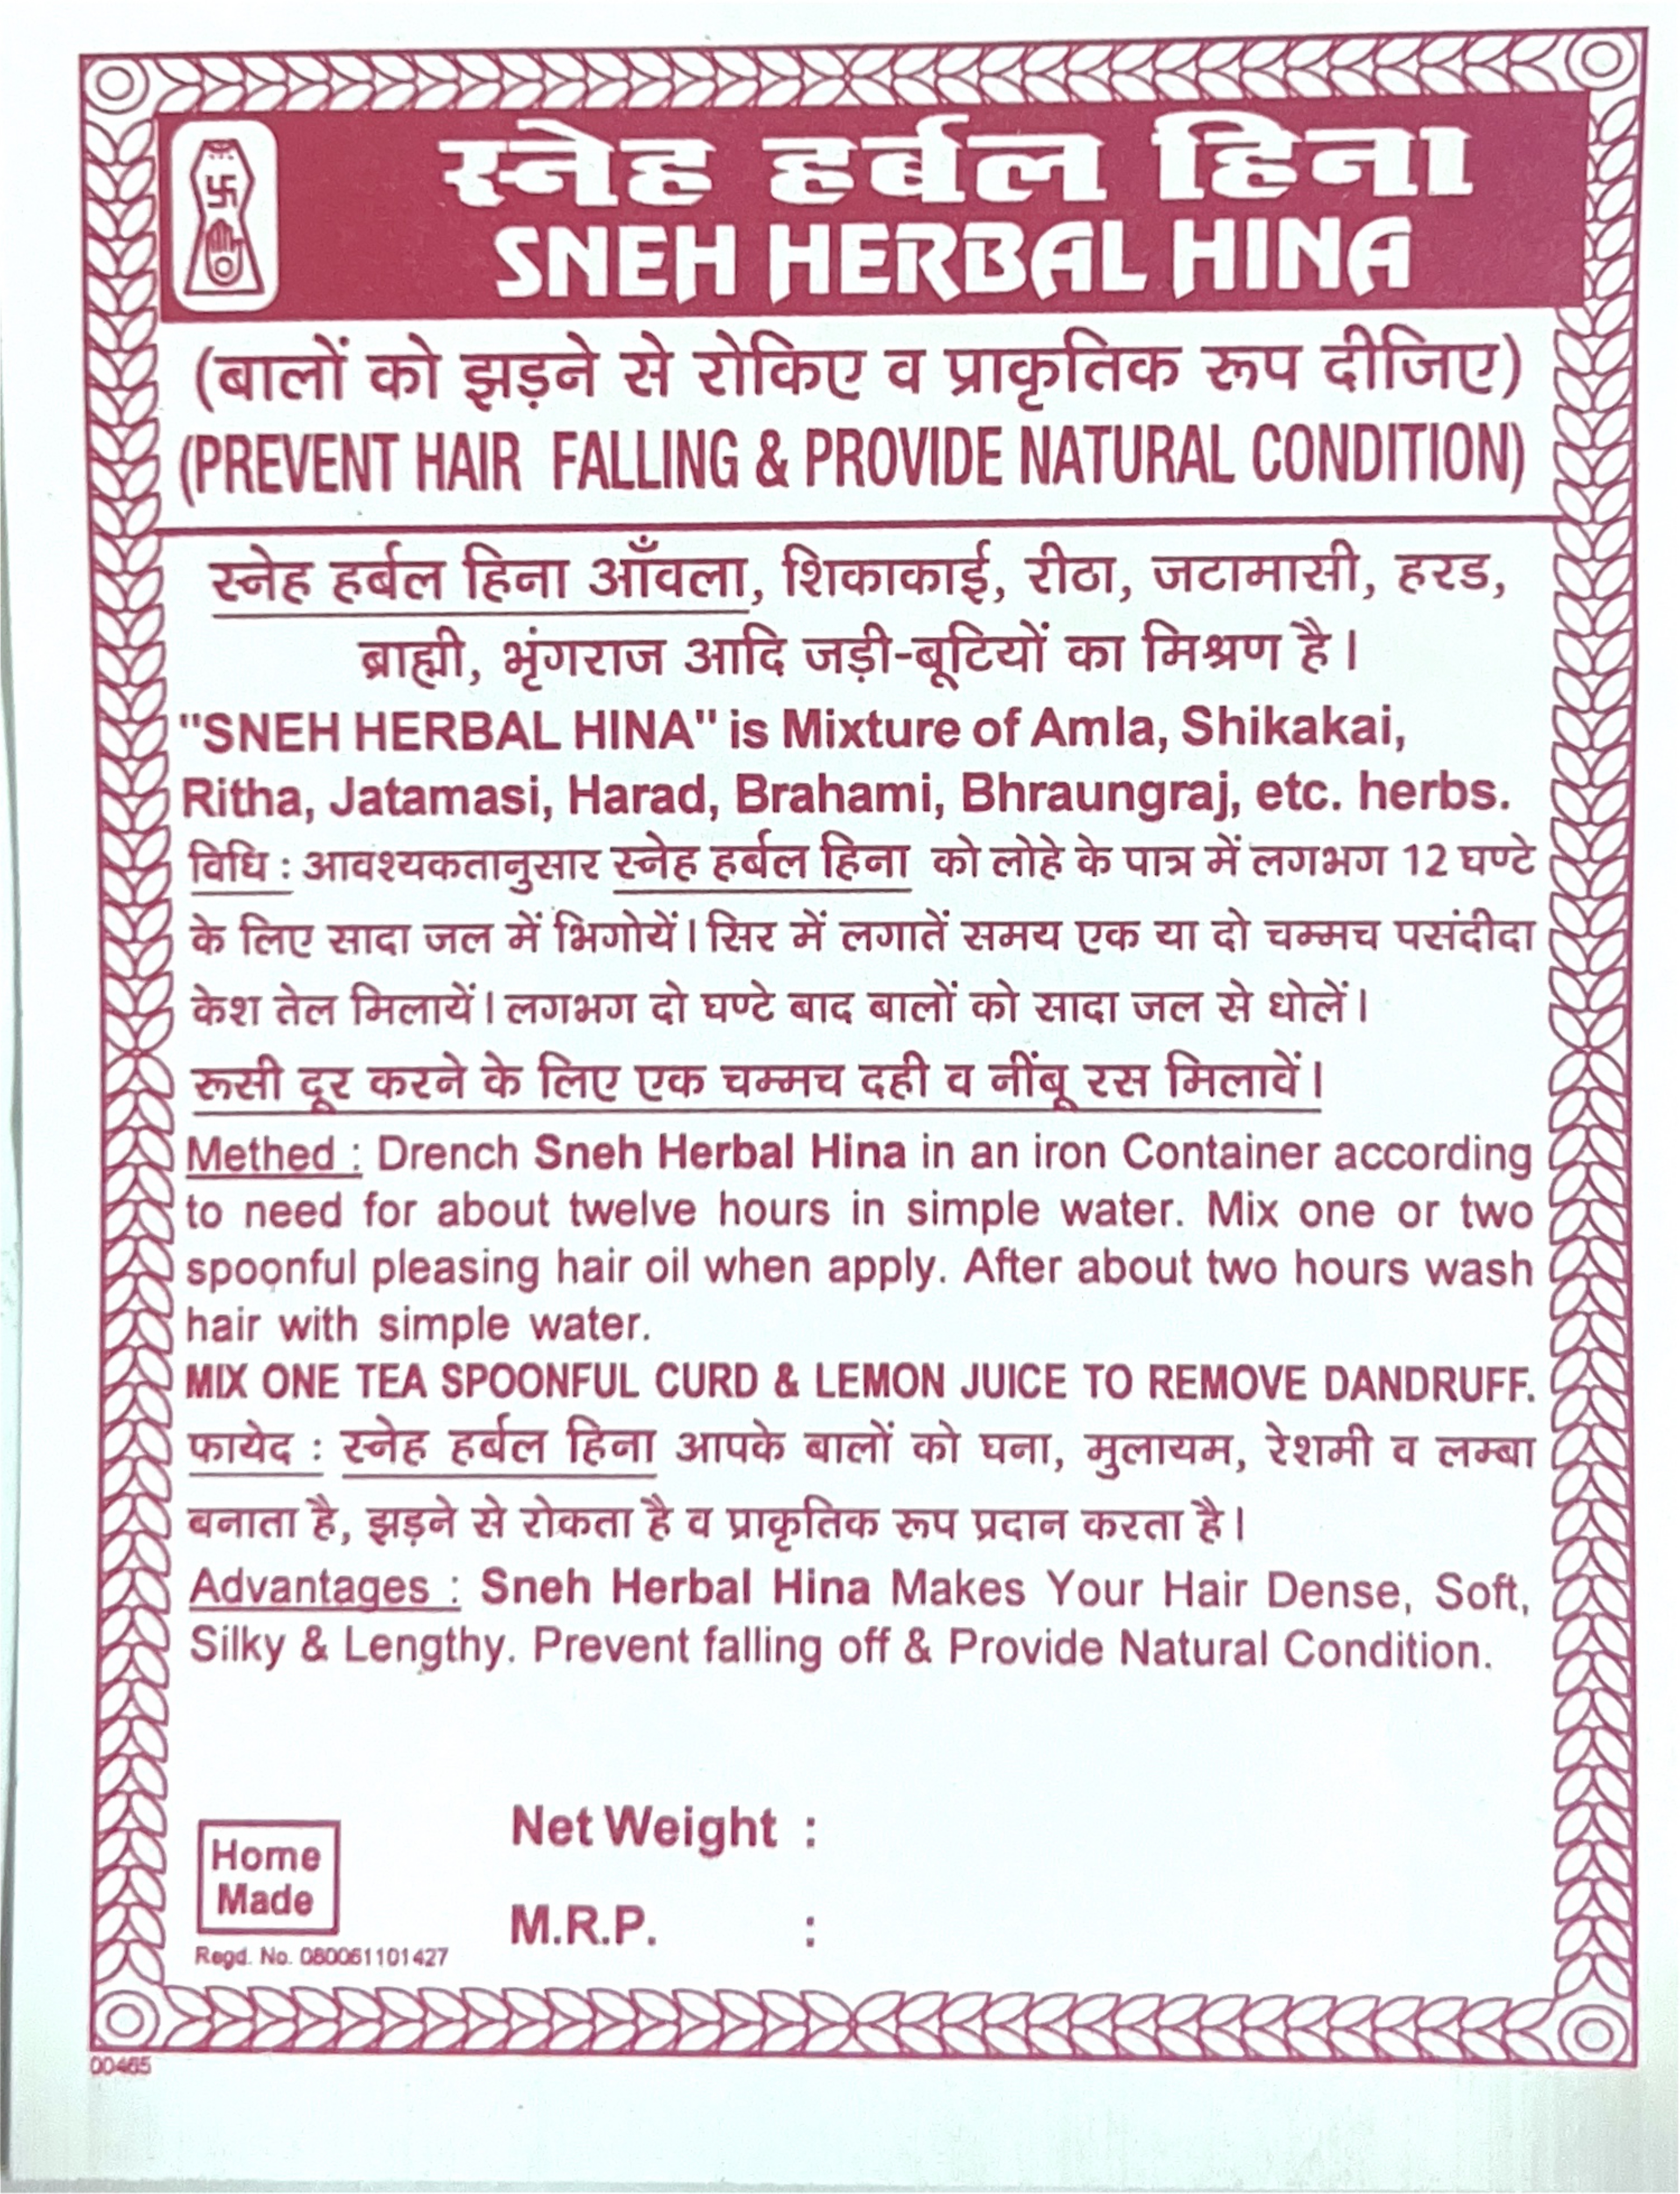 स्नेह हर्बल हिना
SNEH HERBAL HINA
(बालों को झड़ने से रोकिए व प्राकृतिक रूप दीजिए)
(PREVENT HAIR FALLING & PROVIDE NATURAL CONDITION)
स्नेह हर्बल हिना आँवला, शिकाकाई, रीठा, जटामासी, हरड,
ब्राह्मी, भृंगराज आदि जड़ी-बूटियों का मिश्रण है।
"SNEH HERBAL HINA" is Mixture of Amla, Shikakai,
Ritha, Jatamasi, Harad, Brahami, Bhraungraj, etc. herbs.
विधि : आवश्यकतानुसार स्नेह हर्बल हिना को लोहे के पात्र में लगभग 12 घण्टे
के लिए सादा जल में भिगोयें। सिर में लगातें समय एक या दो चम्मच पसंदीदा
केश तेल मिलायें। लगभग दो घण्टे बाद बालों को सादा जल से धोलें।
रूसी दूर करने के लिए एक चम्मच दही व नींबू रस मिलावें।
Methed : Drench Sneh Herbal Hina in an iron Container according
to need for about twelve hours in simple water. Mix one or two
spoonful pleasing hair oil when apply. After about two hours wash
hair with simple water.
MIX ONE TEA SPOONFUL CURD & LEMON JUICE TO REMOVE DANDRUFF.
फायेद : स्नेह हर्बल हिना आपके बालों को घना, मुलायम, रेशमी व लम्बा
बनाता है, झड़ने से रोकता है व प्राकृतिक रूप प्रदान करता है।
Advantages : Sneh Herbal Hina Makes Your Hair Dense, Soft,
Silky & Lengthy. Prevent falling off & Provide Natural Condition.
Net Weight :
Home
Made
M.R.P. :
Regd. No. 080061101427
00465